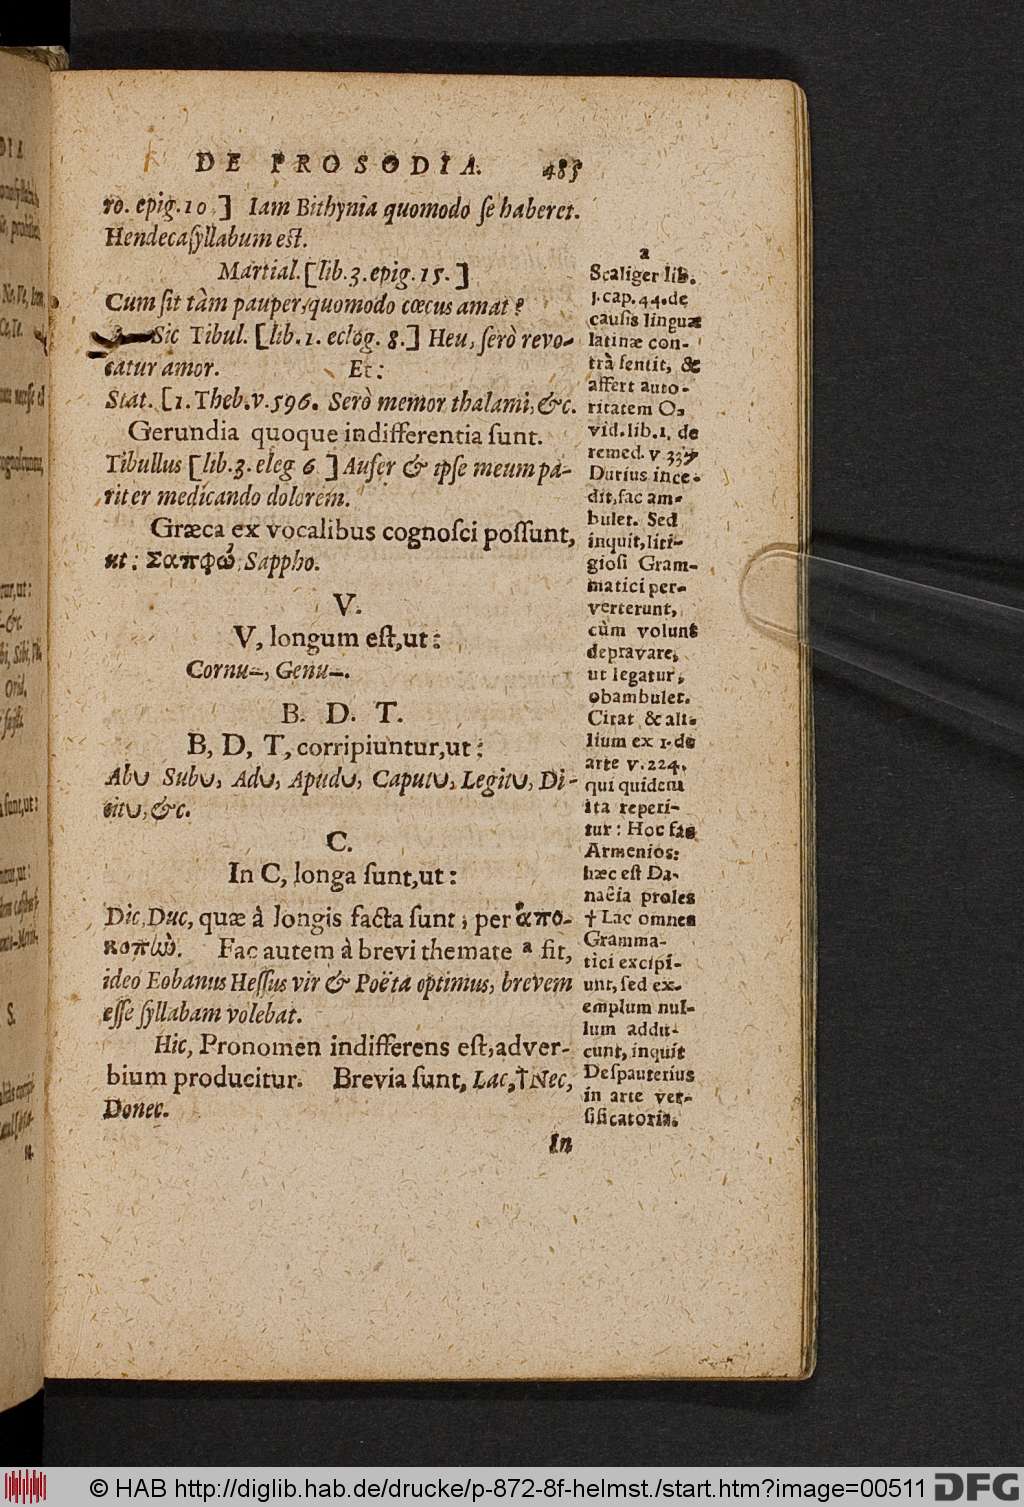 DE PROSODIA. 485
ro. epig. 10.] Iam Bithynia quomodo ſe haberet.
Hendecaſyllabum eſt.
Martial. [lib. 3. epig. 15.]
Cum ſit tàm pauper, quomodo cœcus amat?
Sic Tibul. [lib. 1. eclog. 8.] Heu, ſerò revo-
catur amor. Et:
Stat. [1. Theb. v. 596. Serò memor thalami, &c.
Gerundia quoque indifferentia ſunt.
Tibullus [lib. 3. eleg 6.] Aufer & ipſe meum pa-
riter medicando dolorem.
Græca ex vocalibus cognoſci poſſunt,
ut: Σαπφώ, Sappho.
V.
V, longum eſt, ut:
Cornu-, Genu-.
B. D. T.
B, D, T, corripiuntur, ut:
Ab∪ Sub∪, Ad∪, Apud∪, Caput∪, Legit∪, Di-
cit∪, &c.
C.
In C, longa ſunt, ut:
Dic, Duc, quæ à longis facta ſunt, per ἀπο-
κοπὼ. Fac autem à brevi themate a ſit,
ideo Eobanus Heſſus vir & Poëta optimus, brevem
eſſe ſyllabam volebat.
Hic, Pronomen indifferens eſt, adver-
bium producitur. Brevia ſunt, Lac, † Nec,
Donec.
In
a
Scaliger lib.
1. cap. 44. de
cauſis linguæ
latinæ con-
trà ſentit, &
affert auto-
ritatem O-
vid. lib. 1. de
remed. v 337
Durius ince-
dit, fac am-
bulet. Sed
inquit, liti-
gioſi Gram-
matici per-
verterunt,
cùm volunt
depravare,
ut legatur,
obambulet.
Citat & ali-
lium ex 1. de
arte v. 224.
qui quidem
ita reperi-
tur: Hoc fac
Armenios:
hæc eſt Da-
naëia proles
† Lac omnes
Gramma-
tici excipi-
unt, ſed ex-
emplum nul-
lum addu-
cunt, inquit
Deſpauterius
in arte ver-
ſificatoria.
© HAB http://diglib.hab.de/drucke/p-872-8f-helmst./start.htm?image=00511
DFG